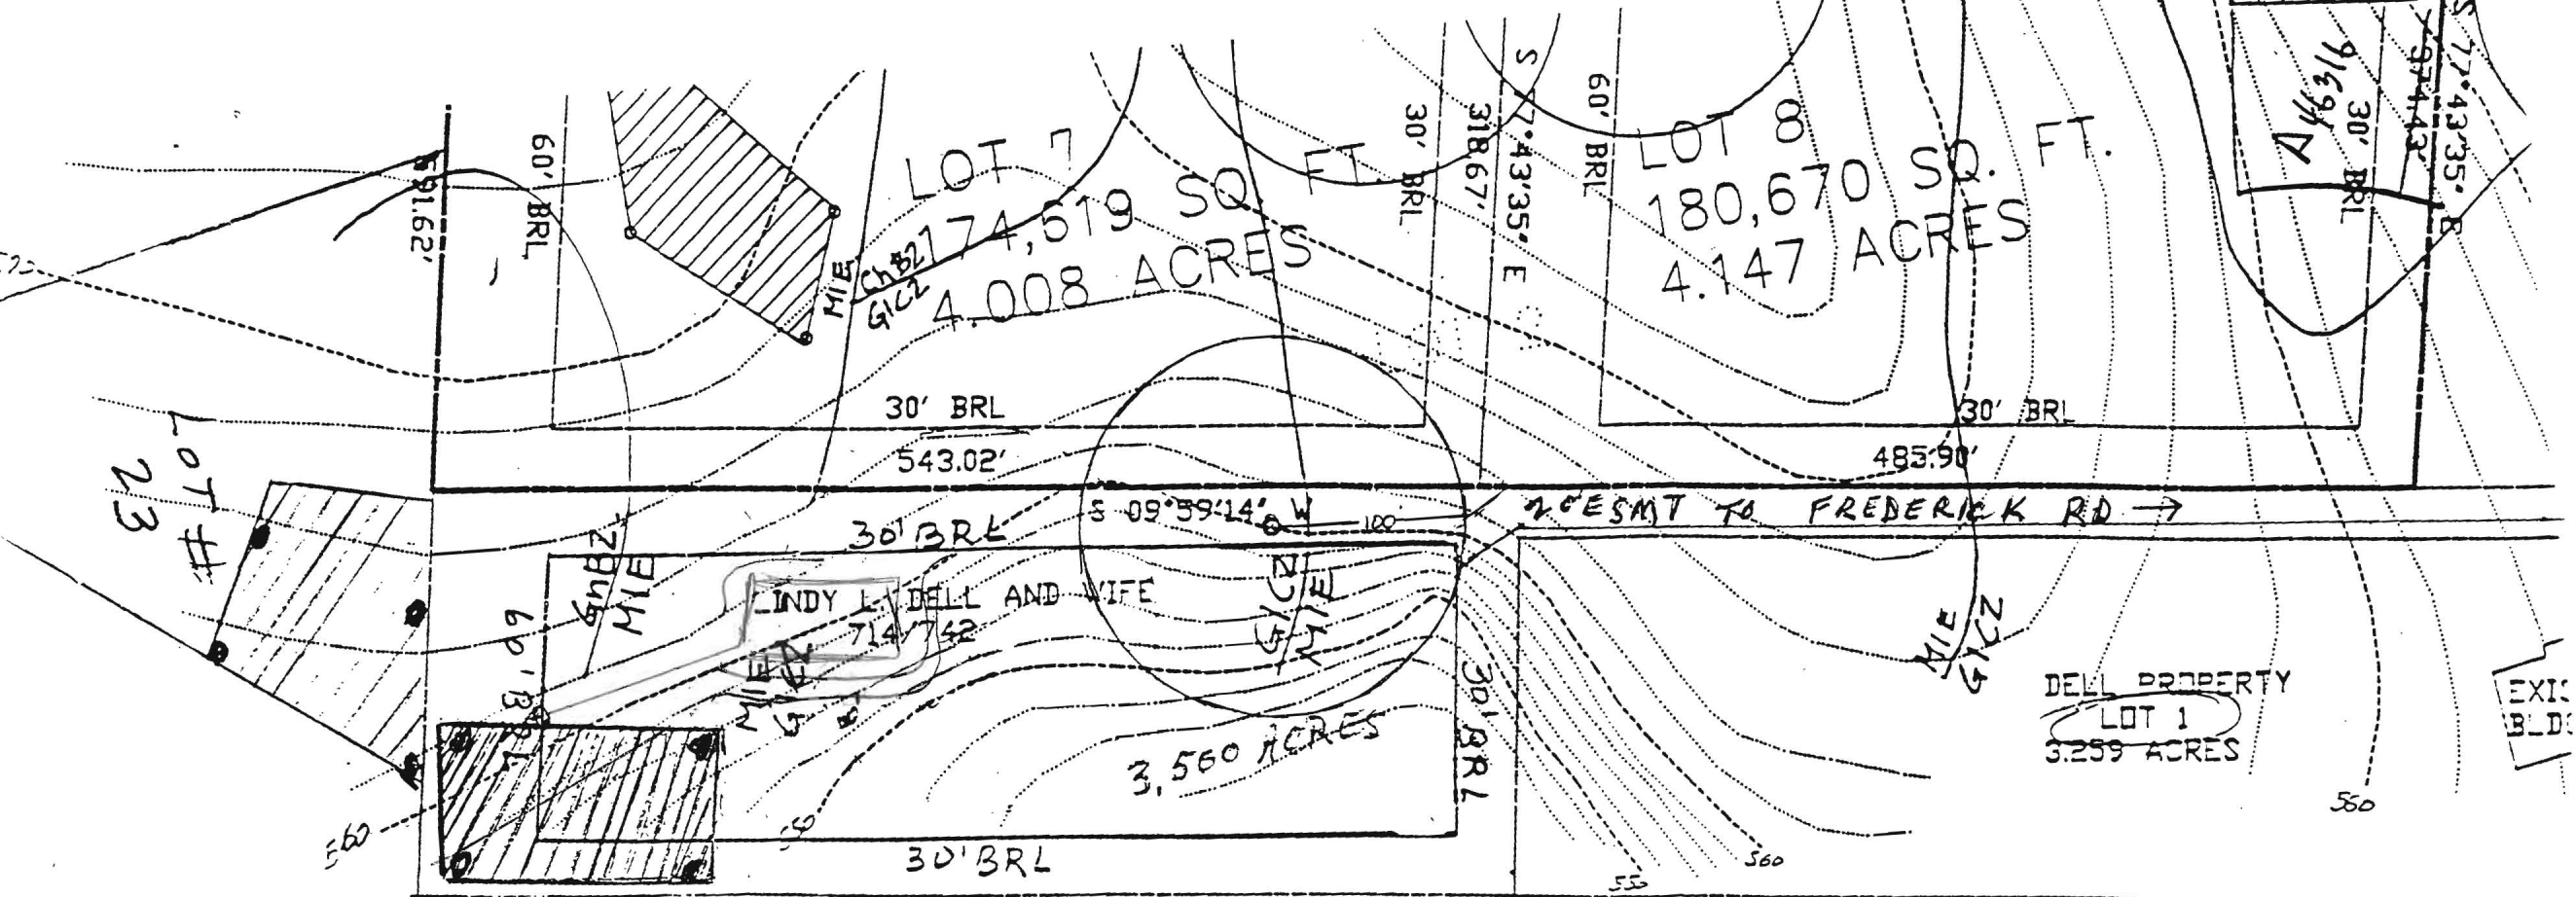 591.62'
60' BRL
LOT 7
174,519 SQ. FT.
4.008 ACRES
MIE
ChB2
GlC2
30' BRL
318.67'
S 7°43'35" E
60' BRL
LOT 8
180,670 SQ. FT.
4.147 ACRES
A 46319
30' BRL
374.43'
S 77°43'35" E
30' BRL
543.02'
30' BRL
485.90'
LOT #
23
S 09°59'14" W
100
ESMT TO FREDERICK RD →
30' BRL
MIE
60' BRL
LINDY L. DELL AND WIFE
714/742
MIE
MIE
GlC2
30' BRL
3.560 ACRES
MIE
GlC2
DELL PROPERTY
LOT 1
3.259 ACRES
EXIS
BLD
560
30' BRL
550
560
550